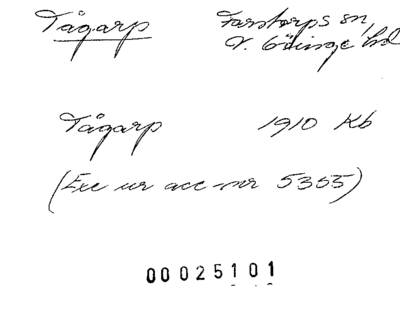 Tågarp Farstorps sn,
V. Göinge hd
Tågarp 1910 Kb
(Exc ur acc-nr 5355)
00025101